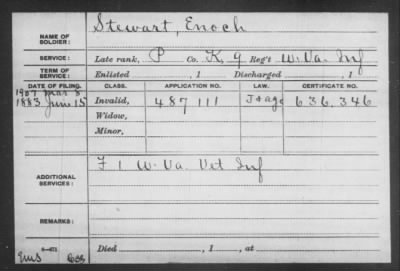 Stewart, Enoch
NAME OF
SOLDIER:
SERVICE: Late rank, P Co. K, 9 Reg't W. Va. Inf
TERM OF
SERVICE: Enlisted , 1 Discharged , 1
DATE OF FILING. CLASS. APPLICATION NO. LAW. CERTIFICATE NO.
1907 Mar 8
1883 Jun 15 Invalid, 487 111 J & age 636.346
Widow,
Minor,
F 1 W. Va. Vet Inf
ADDITIONAL
SERVICES:
REMARKS:
Died , 1 , at
EMS